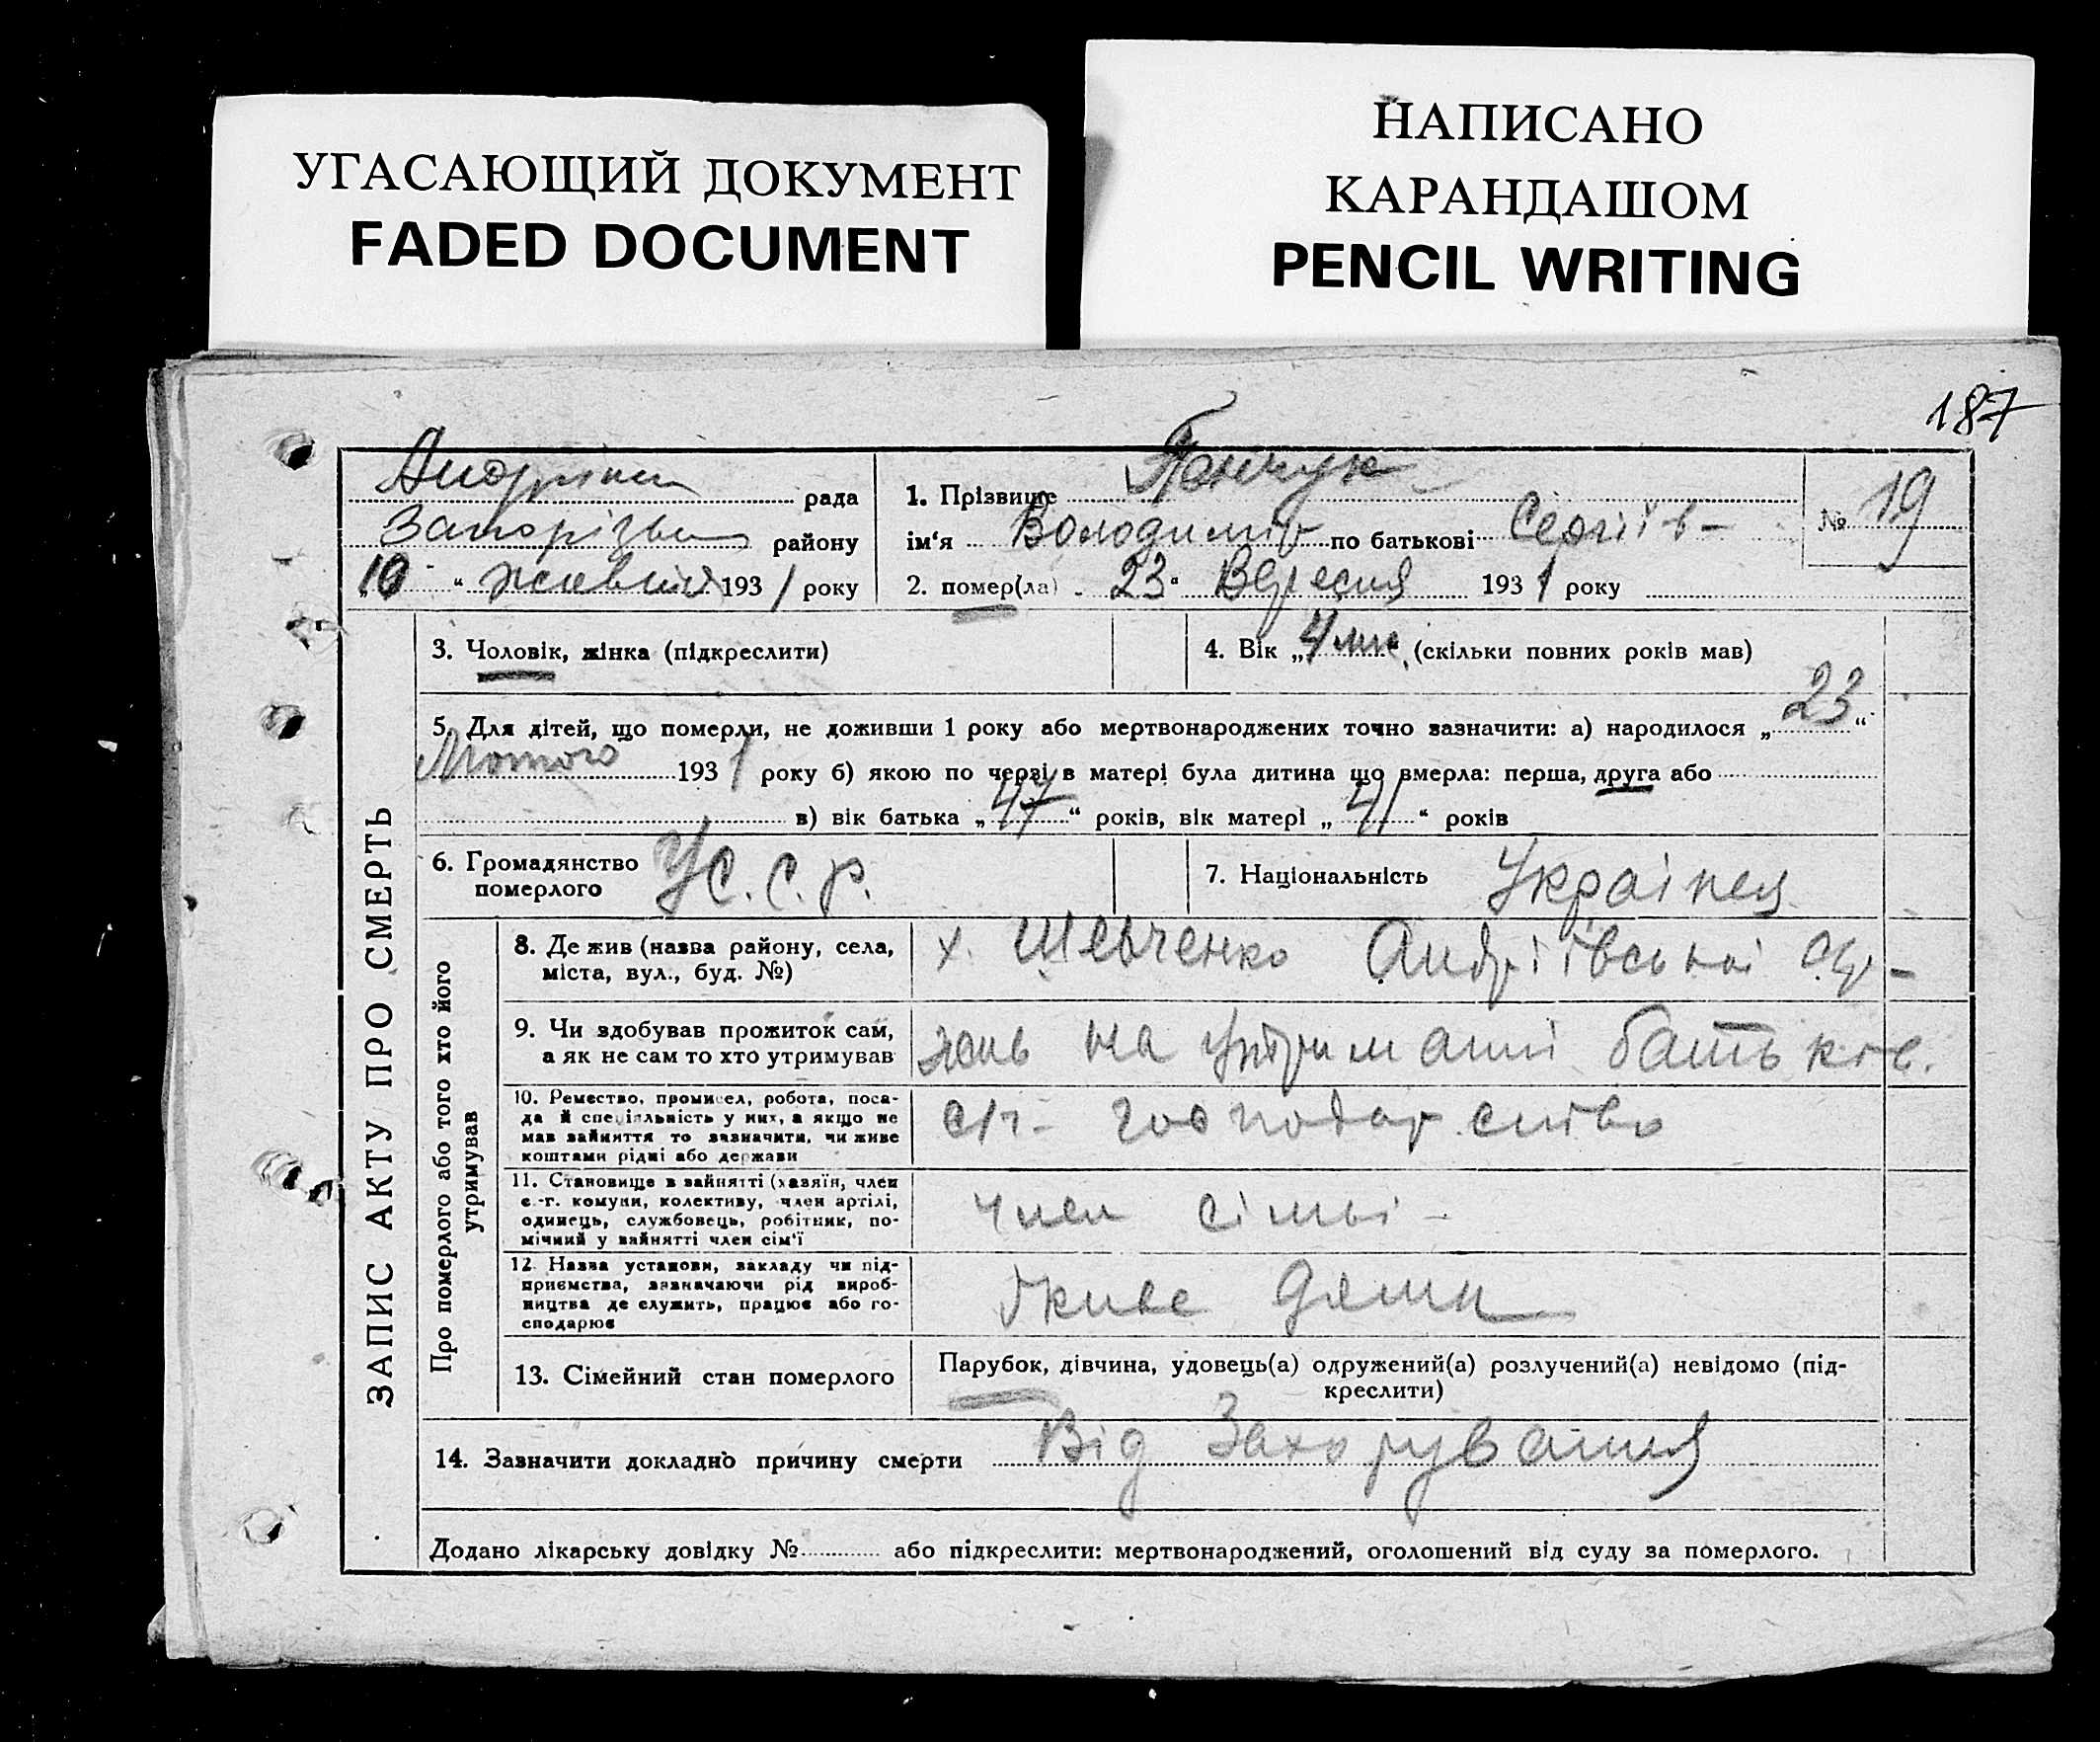 УГАСАЮЩИЙ ДОКУМЕНТ
FADED DOCUMENT
НАПИСАНО
КАРАНДАШОМ
PENCIL WRITING
187
рада
району
10 " жовтня 1931 року
1. Прізвище
ім'я Володимир по батькові Сергіїв-
2. помер(ла) 23 " Вересня 1931 року
№ 19
ЗАПИС АКТУ ПРО СМЕРТЬ
3. Чоловік, жінка (підкреслити)
4. Вік „4 міс“ (скільки повних років мав)
5. Для дітей, що померли, не доживши 1 року або мертвонароджених точно зазначити: а) народилося „23“
Лютого 1931 року б) якою по черзі в матері була дитина що вмерла: перша, друга або
в) вік батька „47“ років, вік матері „41“ років
6. Громадянство
померлого
УС.С.Р.
7. Національність
Українец
Про померлого або того хто його
утримував
8. Де жив (назва району, села,
міста, вул., буд. №)
х. Шевченко Андріївської с/р-
9. Чи здобував прожиток сам,
а як не сам то хто утримував
на утриманні батьків.
10. Ремество, промисел, робота, поса-
да й спеціяльність у них, а якщо не
мав зайняття то зазначити, чи живе
коштами рідні або держави
с/г- господарство
11. Становище в зайнятті (хазяїн, член
с.-г. комуни, колективу, член артілі,
одинець, службовець, робітник, по-
мічний у зайнятті член сім'ї
член сімьі -
12. Назва установи, закладу чи під-
приємства, зазначаючи рід вироб-
ництва де служить, працює або го-
сподарює
13. Сімейний стан померлого
Парубок, дівчина, удовець(а) одружений(а) розлучений(а) невідомо (під-
креслити)
14. Зазначити докладно причину смерти Від Захорування
Додано лікарську довідку № або підкреслити: мертвонароджений, оголошений від суду за померлого.